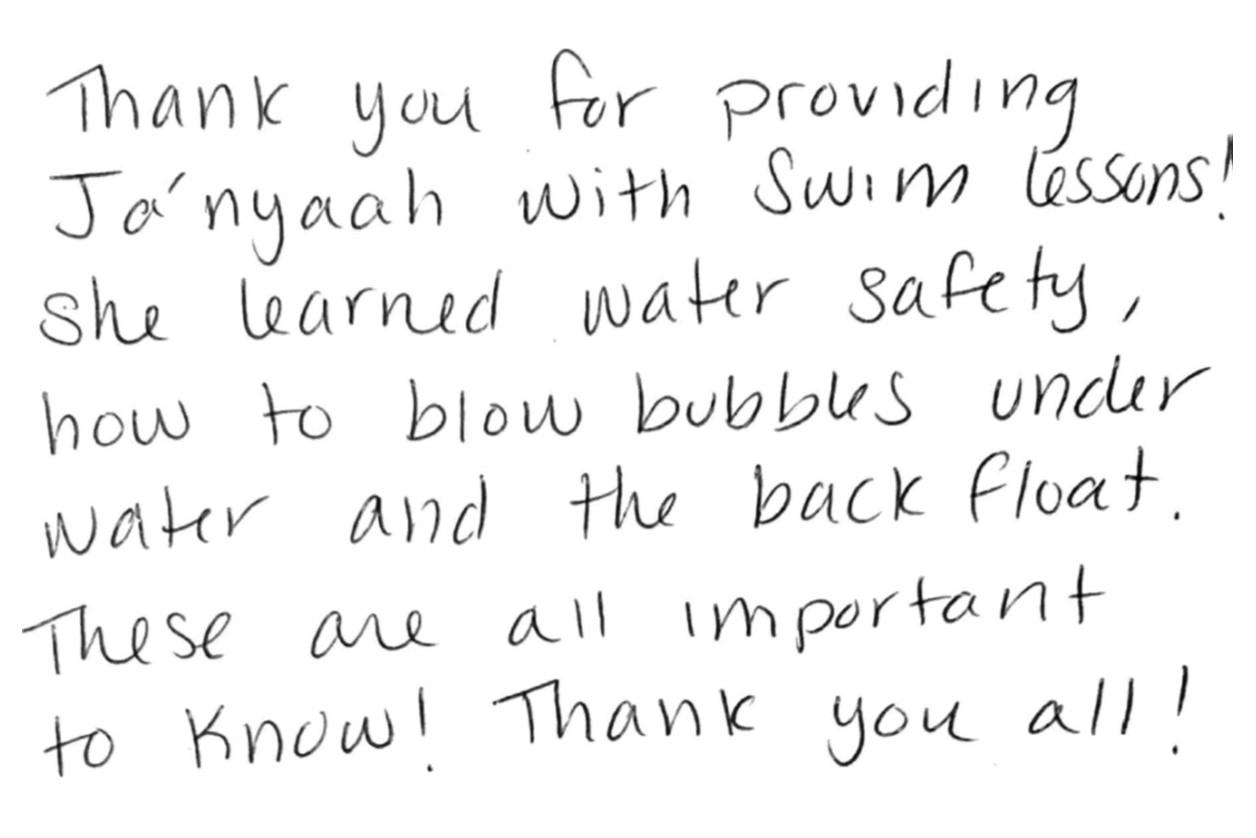 Thank you for providing
Ja'nyaah with Swim lessons!
she learned water safety,
how to blow bubbles under
water and the back float.
These are all important
to know! Thank you all!